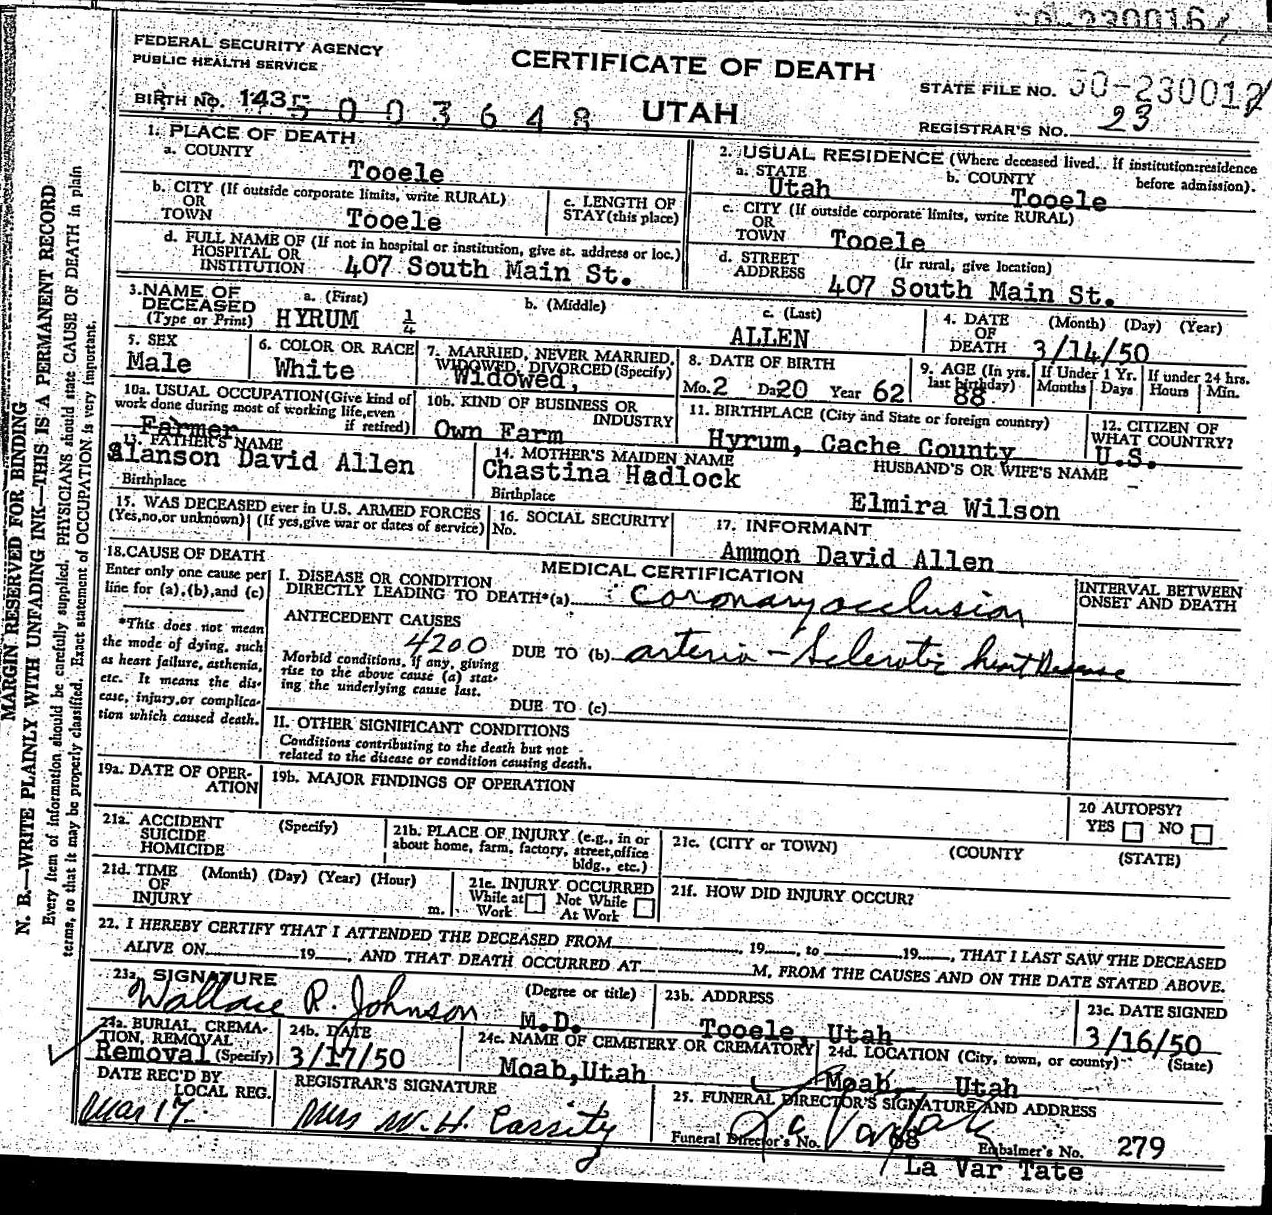 230016
FEDERAL SECURITY AGENCY
PUBLIC HEALTH SERVICE
CERTIFICATE OF DEATH
UTAH
STATE FILE NO. 50-230017
REGISTRAR'S NO. 23
BIRTH NO. 143 5 0 0 3 6 4 8
1. PLACE OF DEATH
a. COUNTY
Tooele
b. CITY (If outside corporate limits, write RURAL)
OR
TOWN Tooele
c. LENGTH OF
STAY (this place)
d. FULL NAME OF (If not in hospital or institution, give st. address or loc.)
HOSPITAL OR
INSTITUTION 407 South Main St.
2. USUAL RESIDENCE (Where deceased lived. If institution:residence
before admission).
a. STATE Utah
b. COUNTY Tooele
c. CITY (If outside corporate limits, write RURAL)
OR
TOWN Tooele
d. STREET (If rural, give location)
ADDRESS 407 South Main St.
3. NAME OF DECEASED
(Type or Print)
a. (First) HYRUM
b. (Middle)
c. (Last) ALLEN
4. DATE OF DEATH (Month) (Day) (Year)
3/14/50
5. SEX
Male
6. COLOR OR RACE
White
7. MARRIED, NEVER MARRIED,
WIDOWED, DIVORCED (Specify)
Widowed,
8. DATE OF BIRTH
Mo. 2 Da 20 Year 62
9. AGE (In yrs. last birthday)
88
If Under 1 Yr.
Months Days
If under 24 hrs.
Hours Min.
10a. USUAL OCCUPATION (Give kind of
work done during most of working life, even
if retired)
Farmer
10b. KIND OF BUSINESS OR
INDUSTRY
Own Farm
11. BIRTHPLACE (City and State or foreign country)
Hyrum, Cache County
12. CITIZEN OF
WHAT COUNTRY?
U.S.
13. FATHER'S NAME
Alanson David Allen
Birthplace
14. MOTHER'S MAIDEN NAME
Chastina Hadlock
Birthplace
HUSBAND'S OR WIFE'S NAME
Elmira Wilson
15. WAS DECEASED ever in U.S. ARMED FORCES
(Yes, no, or unknown) (If yes, give war or dates of service)
16. SOCIAL SECURITY
No.
17. INFORMANT
Ammon David Allen
18. CAUSE OF DEATH
Enter only one cause per
line for (a), (b), and (c)
*This does not mean
the mode of dying, such
as heart failure, asthenia,
etc. It means the dis-
ease, injury, or complica-
tion which caused death.
MEDICAL CERTIFICATION
I. DISEASE OR CONDITION
DIRECTLY LEADING TO DEATH*(a) coronary occlusion
ANTECEDENT CAUSES
4200
Morbid conditions, if any, giving
rise to the above cause (a) stat-
ing the underlying cause last.
DUE TO (b) arterio-Sclerotic heart Disease
DUE TO (c)
II. OTHER SIGNIFICANT CONDITIONS
Conditions contributing to the death but not
related to the disease or condition causing death.
INTERVAL BETWEEN
ONSET AND DEATH
19a. DATE OF OPER-
ATION
19b. MAJOR FINDINGS OF OPERATION
20 AUTOPSY?
YES NO
21a. ACCIDENT (Specify)
SUICIDE
HOMICIDE
21b. PLACE OF INJURY (e.g., in or
about home, farm, factory, street, office
bldg., etc.)
21c. (CITY or TOWN) (COUNTY (STATE)
21d. TIME (Month) (Day) (Year) (Hour)
OF
INJURY m.
21e. INJURY OCCURRED
While at Work Not While At Work
21f. HOW DID INJURY OCCUR?
22. I HEREBY CERTIFY THAT I ATTENDED THE DECEASED FROM , 19 , to 19 , THAT I LAST SAW THE DECEASED
ALIVE ON 19 , AND THAT DEATH OCCURRED AT M, FROM THE CAUSES AND ON THE DATE STATED ABOVE.
23a. SIGNATURE (Degree or title)
Wallace R. Johnson M.D.
23b. ADDRESS
Tooele, Utah
23c. DATE SIGNED
3/16/50
24a. BURIAL, CREMA-
TION, REMOVAL
Removal (Specify)
24b. DATE
3/17/50
24c. NAME OF CEMETERY OR CREMATORY
Moab, Utah
24d. LOCATION (City, town, or county) (State)
Moab, Utah
DATE REC'D BY
LOCAL REG.
Mar 17
REGISTRAR'S SIGNATURE
Mrs W. H. Cassity
25. FUNERAL DIRECTOR'S SIGNATURE AND ADDRESS
Funeral Director's No. 68
Embalmer's No. 279
La Var Tate
MARGIN RESERVED FOR BINDING
N. B.—WRITE PLAINLY WITH UNFADING INK—THIS IS A PERMANENT RECORD
Every item of information should be carefully supplied. PHYSICIANS should state CAUSE OF DEATH in plain
terms, so that it may be properly classified. Exact statement of OCCUPATION is very important.